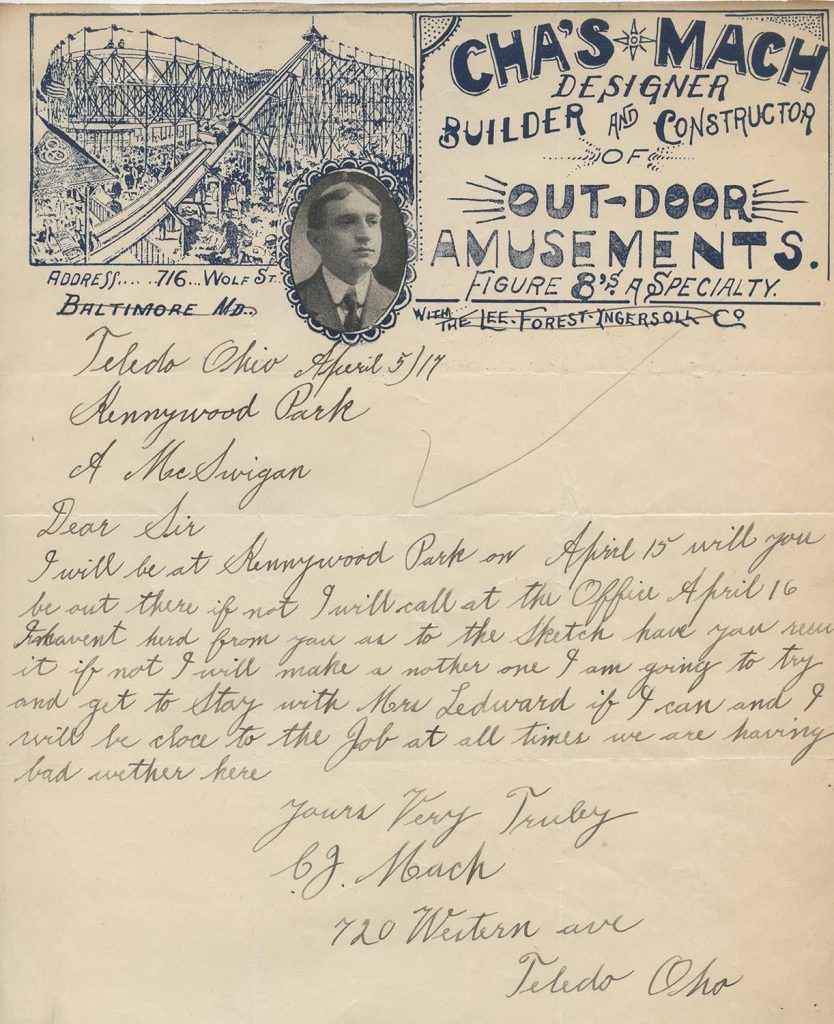 CHA'S MACH
DESIGNER
BUILDER AND CONSTRUCTOR
OF
OUT-DOOR
AMUSEMENTS.
FIGURE 8'S. A SPECIALTY.
WITH THE LEE-FOREST-INGERSOLL CO
ADDRESS.... 716... WOLF ST.
BALTIMORE MD.
Toledo Ohio April 5/17
Kennywood Park
A McSwigan
Dear Sir
I will be at Kennywood Park on April 15 will you
be out there if not I will call at the Office April 16
I havent herd from you as to the Sketch have you
it if not I will make a nother one I am going to try
and get to Stay with Mrs Ledward if I can and I
will be cloce to the Job at all times we are having
bad wether here
Yours Very Truley
C.J. Mach
720 Western ave
Toledo Oho